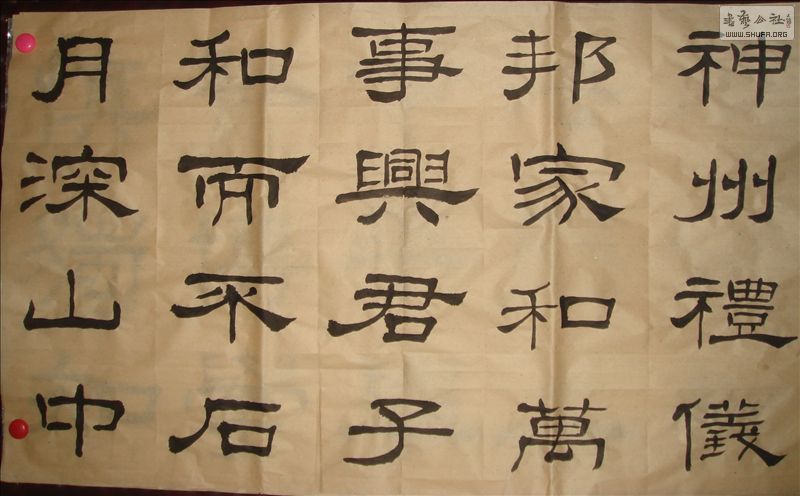 神州禮儀
邦家和萬
事興君子
和而不石
月深山中
WWW.SHUFA.ORG